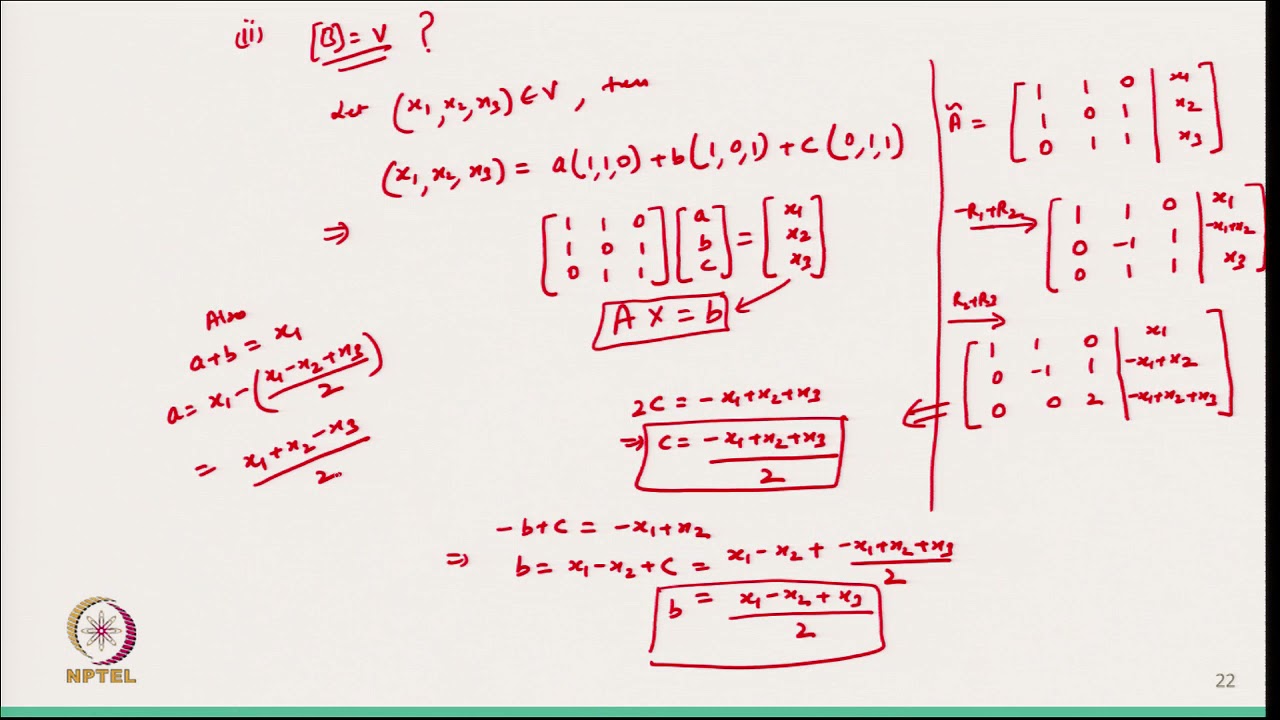 (ii) [B] = V ?
Let (x₁, x₂, x₃) ∈ V, then
(x₁, x₂, x₃) = a(1,1,0) + b(1,0,1) + c(0,1,1)
⇒ [1 1 0; 1 0 1; 0 1 1] [a; b; c] = [x₁; x₂; x₃]
A X = b
Ã = [1 1 0 | x₁; 1 0 1 | x₂; 0 1 1 | x₃]
-R₁+R₂ → [1 1 0 | x₁; 0 -1 1 | -x₁+x₂; 0 1 1 | x₃]
R₂+R₃ → [1 1 0 | x₁; 0 -1 1 | -x₁+x₂; 0 0 2 | -x₁+x₂+x₃]
2c = -x₁+x₂+x₃
⇒ c = (-x₁+x₂+x₃)/2
-b+c = -x₁+x₂
⇒ b = x₁-x₂+c = x₁-x₂ + (-x₁+x₂+x₃)/2
b = (x₁-x₂+x₃)/2
Also
a+b = x₁
a = x₁ - ((x₁-x₂+x₃)/2)
= (x₁+x₂-x₃)/2
NPTEL
22